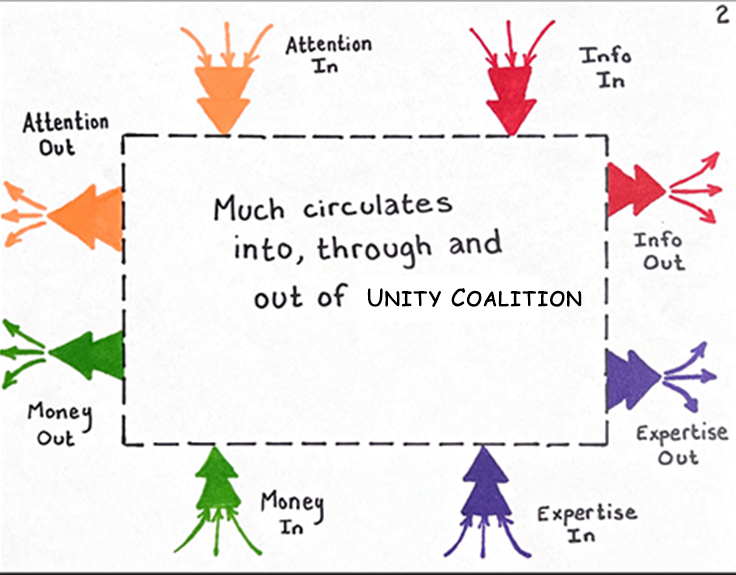 2
Attention
In
Info
In
Attention
Out
Much circulates
into, through and
out of UNITY COALITION
Info
Out
Money
Out
Expertise
Out
Money
In
Expertise
In